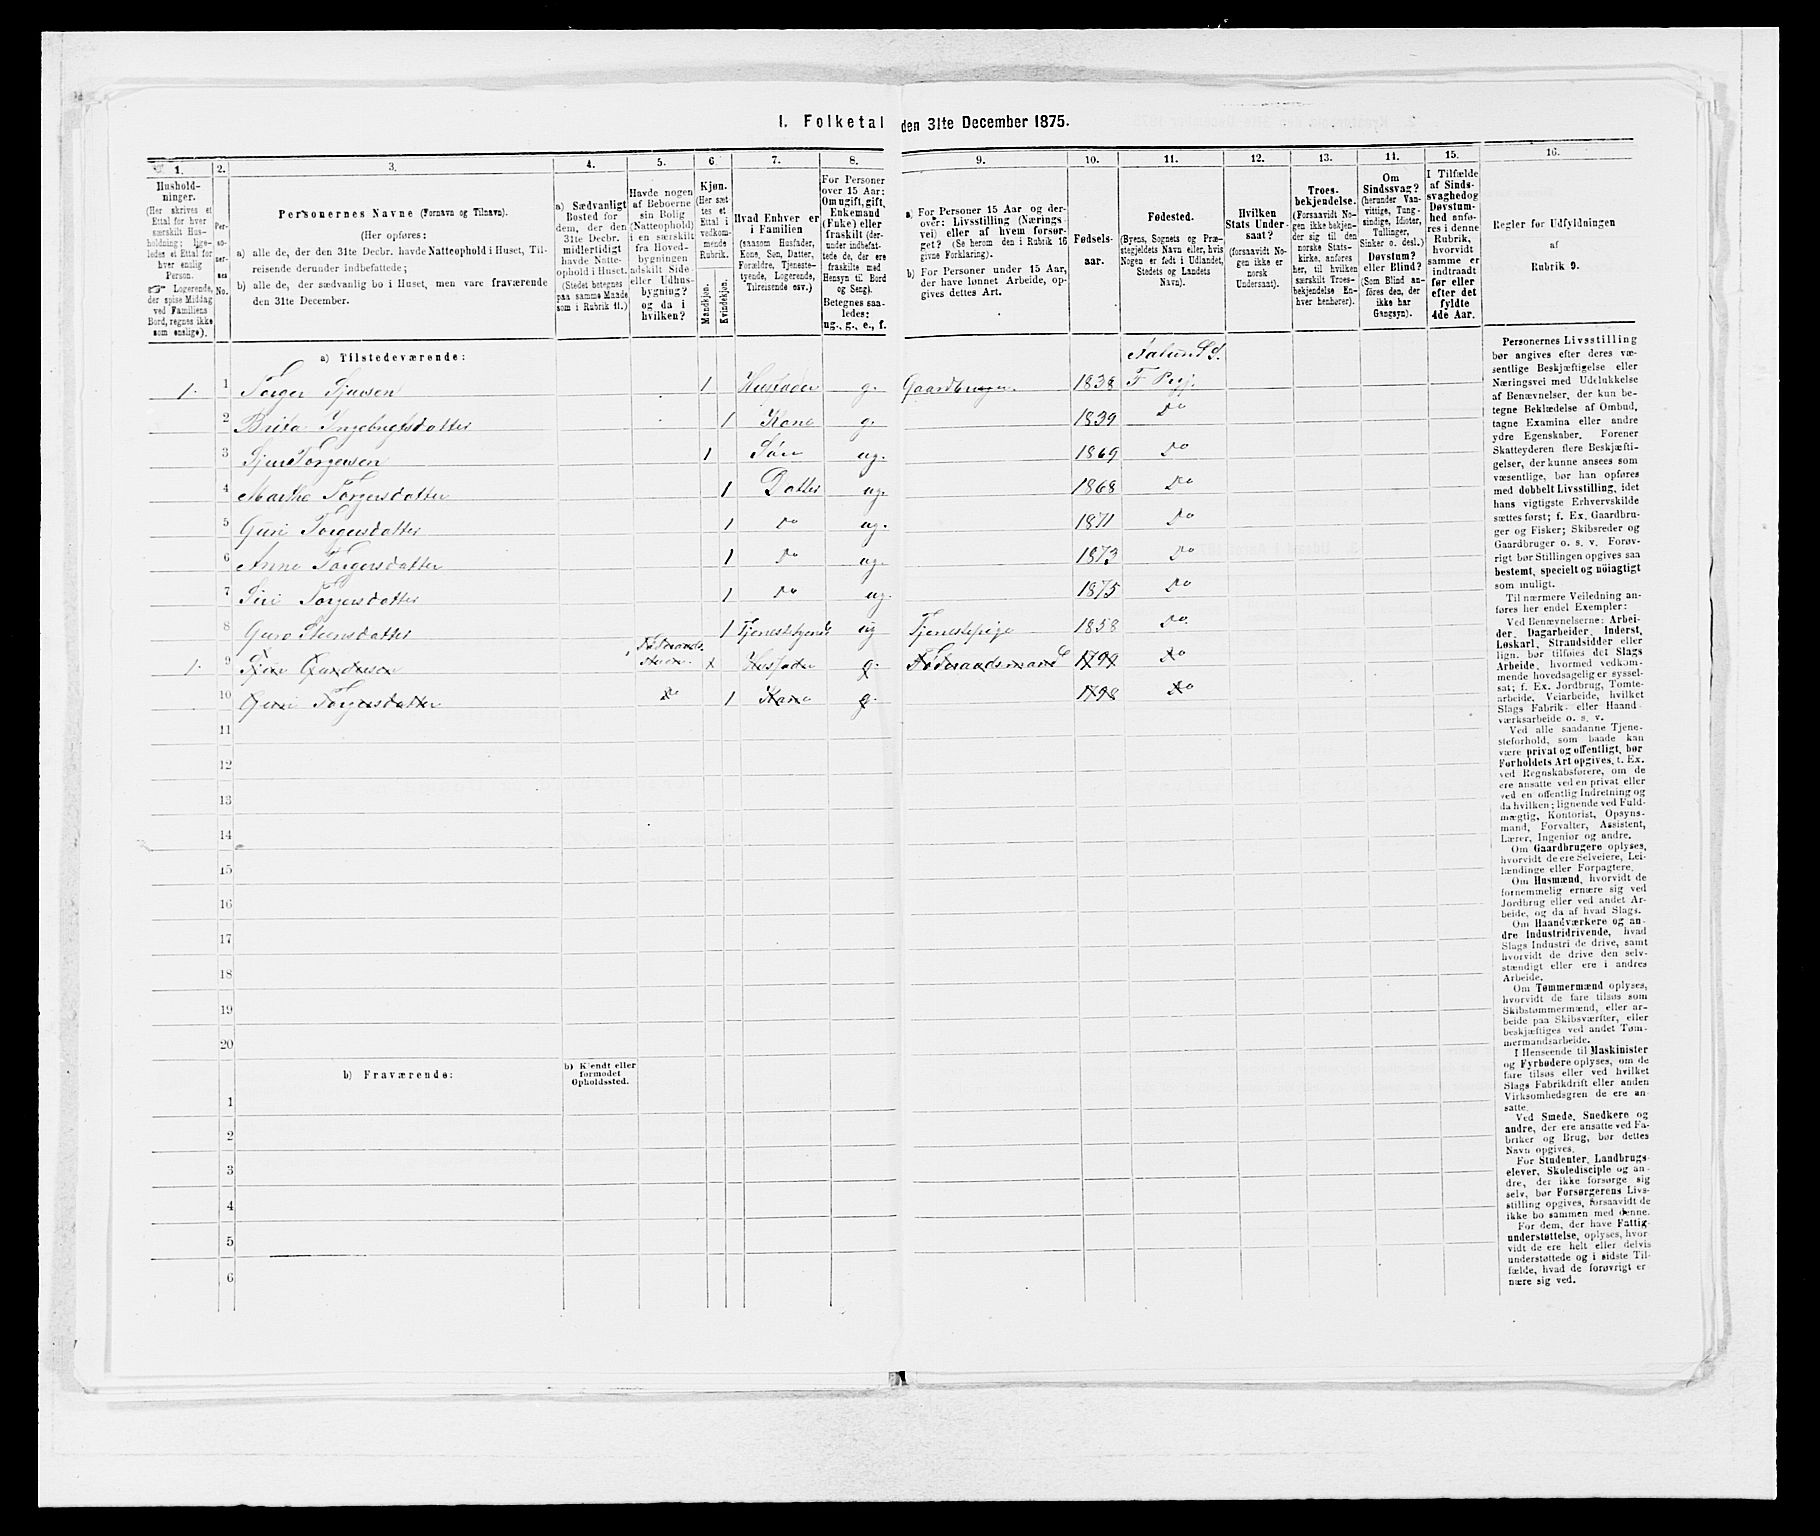 I. Folketal den 31te December 1875.
1. 2. 3. 4. 5. 6. 7. 8. 9. 10. 11. 12. 13. 14. 15. 16.
Hushold-
ninger.
(Her skrives et
Ettal for hver
særskilt Hus-
holdning; lige-
ledes et Ettal for
hver enslig
Person.
☞ Logerende,
der spise Middag
ved Familiens
Bord, regnes ikke
som enslige).
Per-
so-
ner-
nes
No.
Personernes Navne (Fornavn og Tilnavn).
(Her opføres:
a) alle de, der den 31te Decbr. havde Natteophold i Huset, Til-
reisende derunder indbefattede;
b) alle de, der sædvanlig bo i Huset, men vare fraværende
den 31te December.
a) Sædvanligt
Bosted for
dem, der den
31te Decbr.
midlertidigt
havde Natte-
ophold i Huset.
(Stedet betegnes
paa samme Maade
som i Rubrik 11.)
Havde nogen
af Beboerne
sin Bolig
(Natteophold)
i en særskilt
fra Hoved-
bygningen
adskilt Side
eller Udhus-
bygning?
og da i
hvilken?
Kjøn.
(Her sæt-
tes et
Ettal i
vedkom-
mende
Rubrik.
Mandkjøn.
Kvindekjøn.
Hvad Enhver er
i Familien
(saasom Husfader,
Kone, Søn, Datter,
Forældre, Tjeneste-
tyende, Logerende,
Tilreisende osv.)
For Personer
over 15 Aar:
Om ugift, gift,
Enkemand
(Enke) eller
fraskilt (der-
under indbefat-
tede de, der ere
fraskilte med
Hensyn til Bord
og Seng).
Betegnes saa-
ledes:
ug., g., e., f.
a) For Personer 15 Aar og der-
over: Livsstilling (Nærings
vei) eller af hvem forsør-
get? (Se herom den i Rubrik 16
givne Forklaring).
b) For Personer under 15 Aar,
der have lønnet Arbeide, op-
gives dettes Art.
Fødsels-
aar.
Fødested.
(Byens, Sognets og Præ-
stegjeldets Navn eller, hvis
Nogen er født i Udlandet,
Stedets og Landets
Navn).
Hvilken
Stats Under-
saat?
(forsaavidt No-
gen ikke er
norsk
Undersaat).
Troes-
bekjendelse.
(Forsaavidt No-
gen ikke bekjen-
der sig til den
norske Stats-
kirke, anføres
her, til hvilken
særskilt Troes-
bekjendelse En-
hver henhører).
Om
Sindssvag?
(herunder Van-
vittige, Tung-
sindige, Idioter,
Tullinger,
Sinker o. desl.)
Døvstum?
eller Blind?
(Som Blind an-
føres den, der
ikke har
Gangsyn).
I Tilfælde
af Sinds-
svaghed og
Døvstum-
hed anfø-
res i denne
Rubrik,
hvorvidt
samme er
indtraadt
før eller
efter det
fyldte
4de Aar.
Regler for Udfyldningen
af
Rubrik 9.
a) Tilstedeværende:
1. 1 Torger Sjursen 1 Husfader g. Gaardbruger 1838 F Prgj.
2 Brita Ingebrigtsdatter 1 Kone g. 1839 Do
3 Sjur Torgersen 1 Søn ug. 1869 Do
4 Marthe Torgersdatter 1 Datter ug. 1868 Do
5 Guri Torgersdatter 1 Do ug. 1871 Do
6 Anna Torgersdatter 1 Do ug. 1873 Do
7 Siri Torgersdatter 1 Do ug. 1875 Do
8 Guro Steensdatter 1 Tjenestetyende ug Tjenestepige 1858 Do
1. 9 Husfader g. Føderaadsmand 1799 Do
10 Guri Torgersdatter Do 1 Kone g. 1798 Do
11
12
13
14
15
16
17
18
19
20
b) Fraværende:
b) Kjendt eller
formodet
Opholdssted.
1
2
3
4
5
6
Personernes Livsstilling
bør angives efter deres væ-
sentlige Beskjæftigelse eller
Næringsvei med Udelukkelse
af Benævnelser, der kun be-
tegne Beklædelse af Ombud,
tagne Examina eller andre
ydre Egenskaber. Forener
Skatteyderen flere Beskjæfti-
gelser, der kunne ansees som
væsentlige, bør han opføres
med dobbelt Livsstilling, idet
hans vigtigste Erhvervskilde
sættes først; f. Ex. Gaardbru-
ger og Fisker; Skibsreder og
Gaardbruger o. s. v. Forøv-
rigt bør Stillingen opgives saa
bestemt, specielt og nöiagtigt
som muligt.
Til nærmere Veiledning an-
føres her endel Exempler:
Ved Benævnelserne: Arbei-
der, Dagarbeider, Inderst,
Løskarl, Strandsidder eller
lign. bør tilføies det Slags
Arbeide, hvormed vedkom-
mende hovedsagelig er syssel-
sat; f. Ex. Jordbrug, Tomte-
arbeide, Veiarbeide, hvilket
Slags Fabrik- eller Haand-
værksarbeide o. s. v.
Ved alle saadanne Tjene-
steforhold, som baade kan
være privat og offentligt, bør
Forholdets Art opgives, t. Ex.
ved Regnskabsførere, om de
ere ansatte ved en privat eller
ved en offentlig Indretning og
da hvilken; lignende ved Fuld-
mægtig, Kontorist, Opsyns-
mand, Forvalter, Assistent,
Lærer, Ingeniør og andre.
Om Gaardbrugere oplyses,
hvorvidt de ere Selveiere, Lei-
lændinge eller Forpagtere.
Om Husmænd, hvorvidt de
fornemmelig ernære sig ved
Jordbrug eller ved andet Ar-
beide, og da af hvad Slags.
Om Haandværkere og an-
dre Industridrivende, hvad
Slags Industri de drive, samt
hvorvidt de drive den selv-
stændigt eller ere i andres
Arbeide.
Om Tømmermænd oplyses,
hvorvidt de fare tilsøs som
Skibstømmermænd, eller ar-
beide paa Skibsværfter, eller
beskjæftiges ved andet Tøm-
mermandsarbeide.
I Henseende til Maskinister
og Fyrbødere oplyses, om de
fare tilsøs eller ved hvilket
Slags Fabrikdrift eller anden
Virksomhedsgren de ere an-
satte.
Ved Smede, Snedkere og
andre, der ere ansatte ved Fa-
briker og Brug, bør dettes
Navn opgives.
For Studenter, Landbrugs-
elever, Skoledisciple og an-
dre, der ikke forsørge sig
selv, bør Forsørgerens Livs-
stilling opgives, forsaavidt de
ikke bo sammen med denne.
For dem, der have Fattig-
understøttelse, oplyses, hvor-
vidt de ere helt eller delvis
understøttede og i sidste Til-
fælde, hvad de forøvrigt er
nære sig ved.